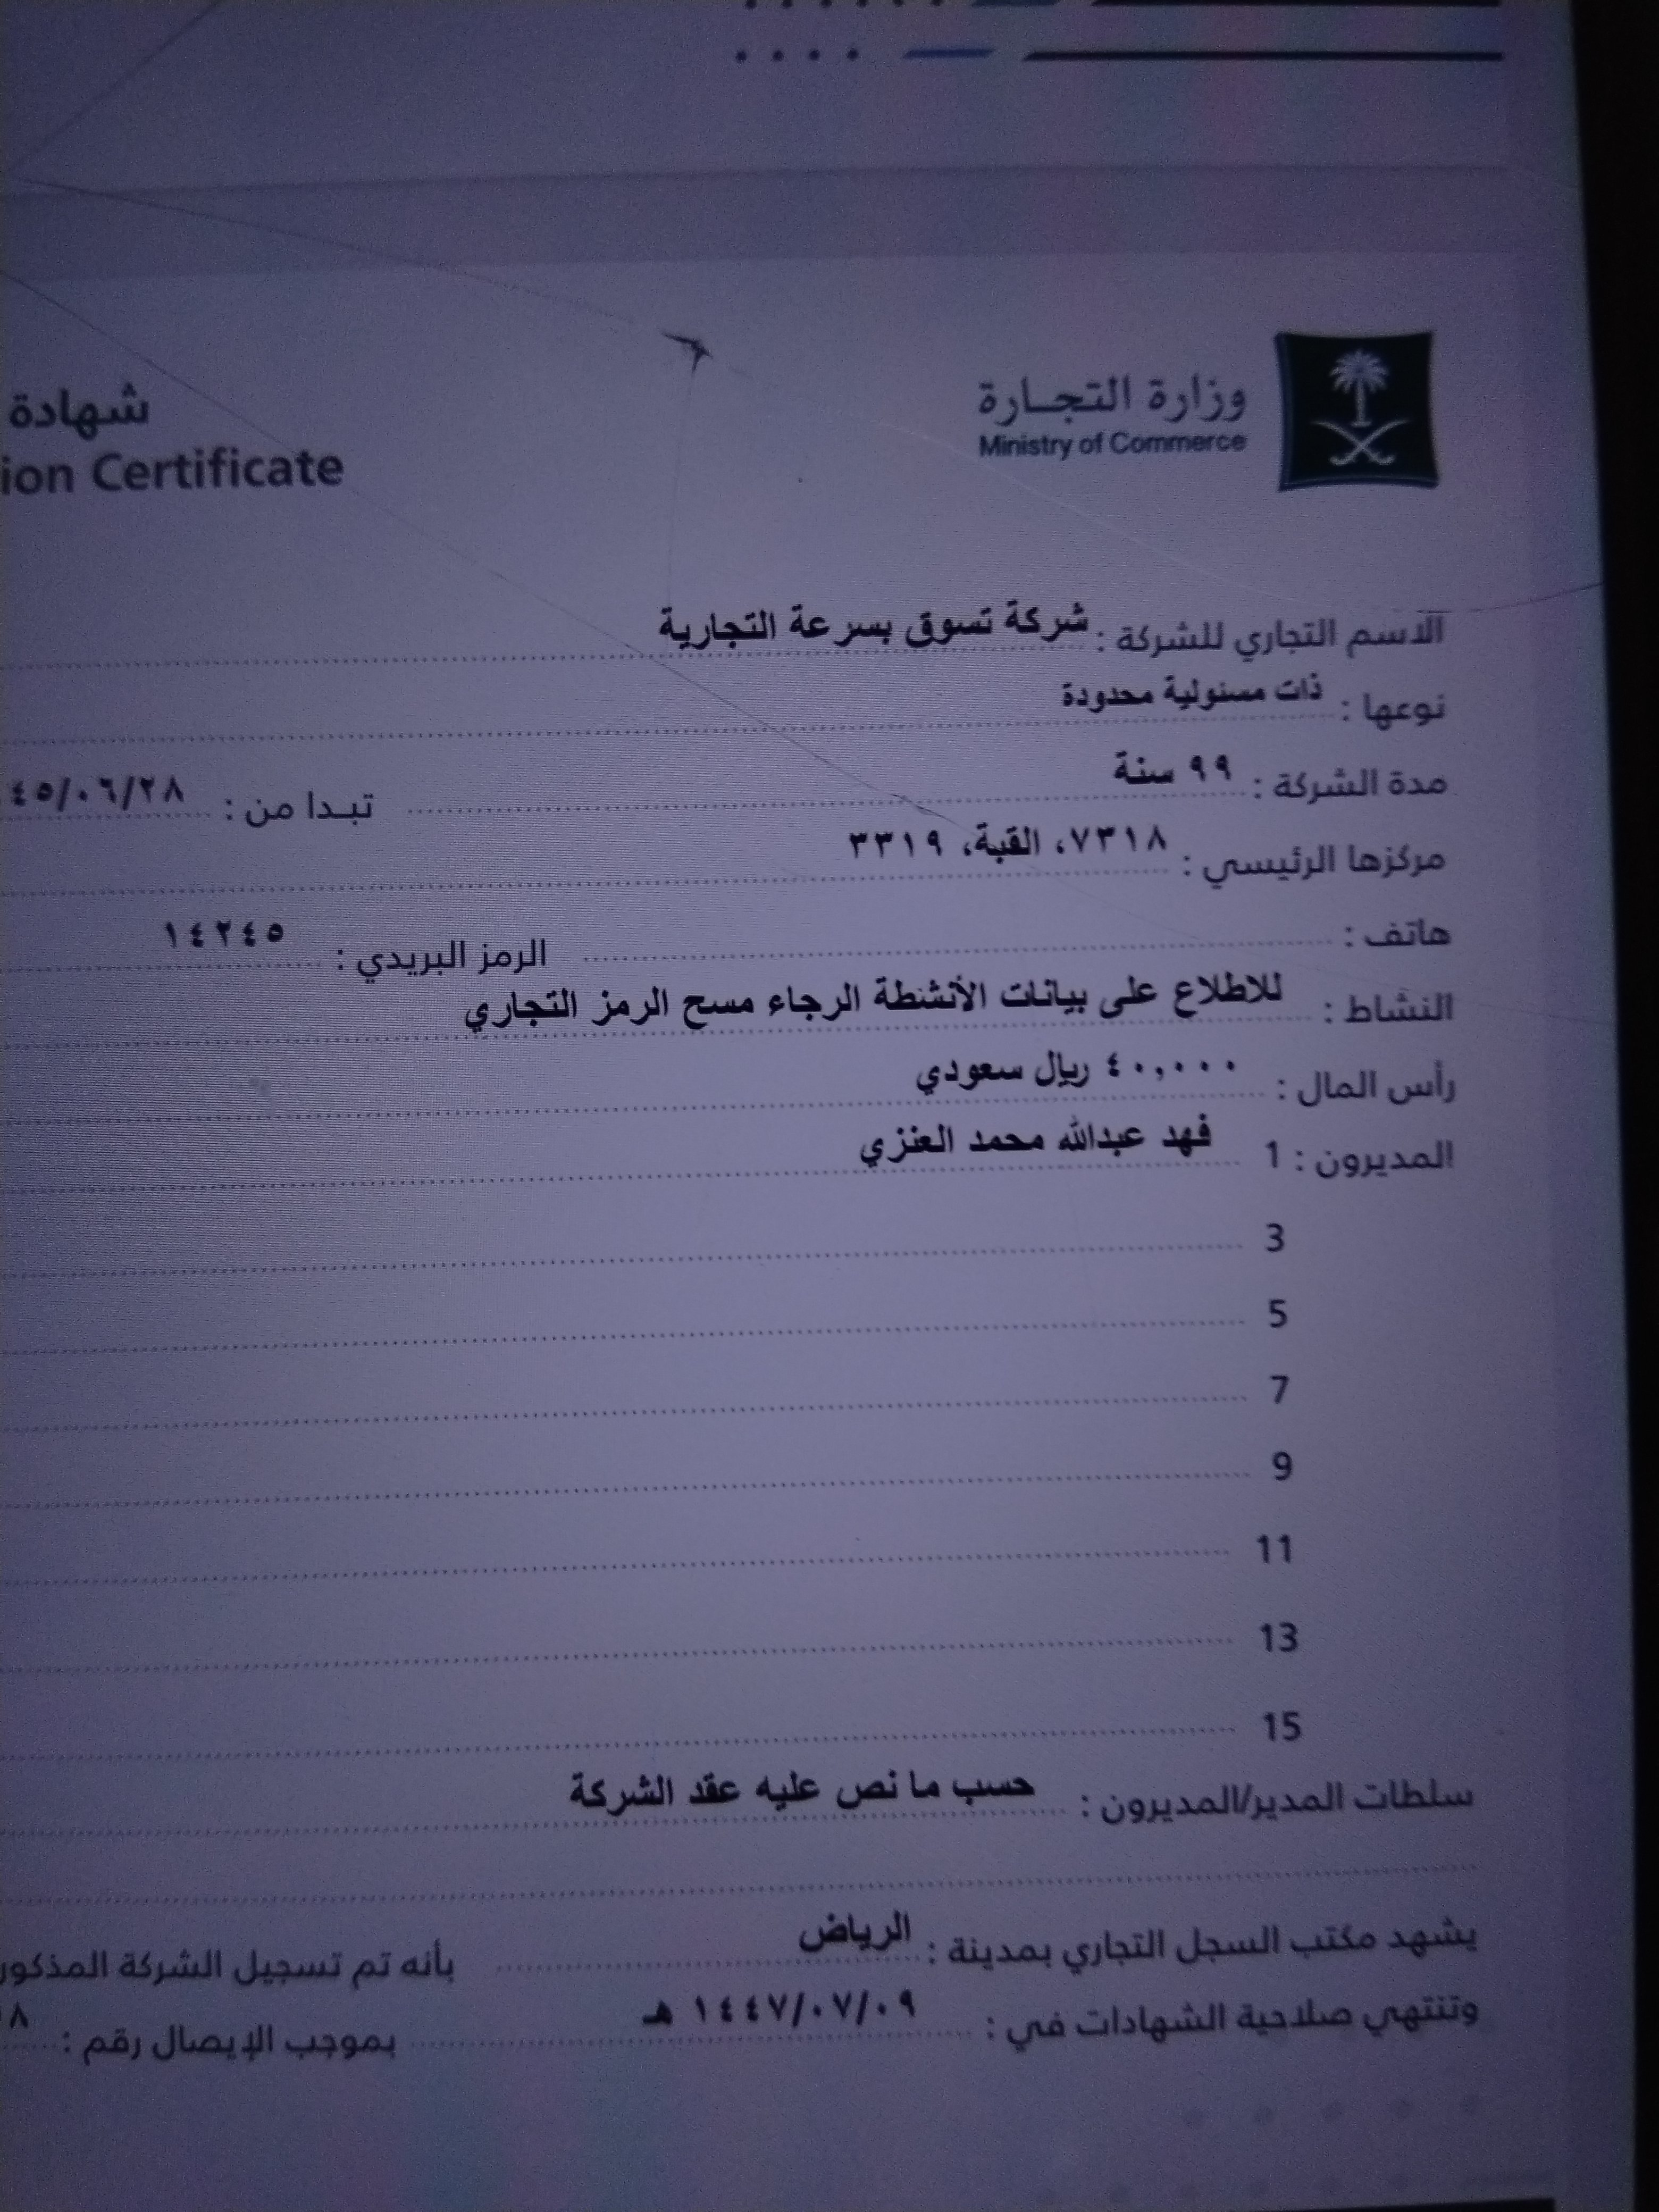 وزارة التجارة
Ministry of Commerce
شهادة
ion Certificate
الاسم التجاري للشركة : شركة تسوق بسرعة التجارية
نوعها : ذات مسئولية محدودة
مدة الشركة : ٩٩ سنة تبدا من : ٤٥/٠٦/٢٨
مركزها الرئيسي : ٧٣١٨، القبة، ٣٣١٩
هاتف : الرمز البريدي : ١٤٢٤٥
النشاط : للاطلاع على بيانات الأنشطة الرجاء مسح الرمز التجاري
رأس المال : ٤٠,٠٠٠ ريال سعودي
المديرون : 1 فهد عبدالله محمد العنزي
3
5
7
9
11
13
15
سلطات المدير/المديرون : حسب ما نص عليه عقد الشركة
يشهد مكتب السجل التجاري بمدينة : الرياض بأنه تم تسجيل الشركة المذكور
وتنتهي صلاحية الشهادات في : ١٤٤٧/٠٧/٠٩ هـ بموجب الإيصال رقم : ٨